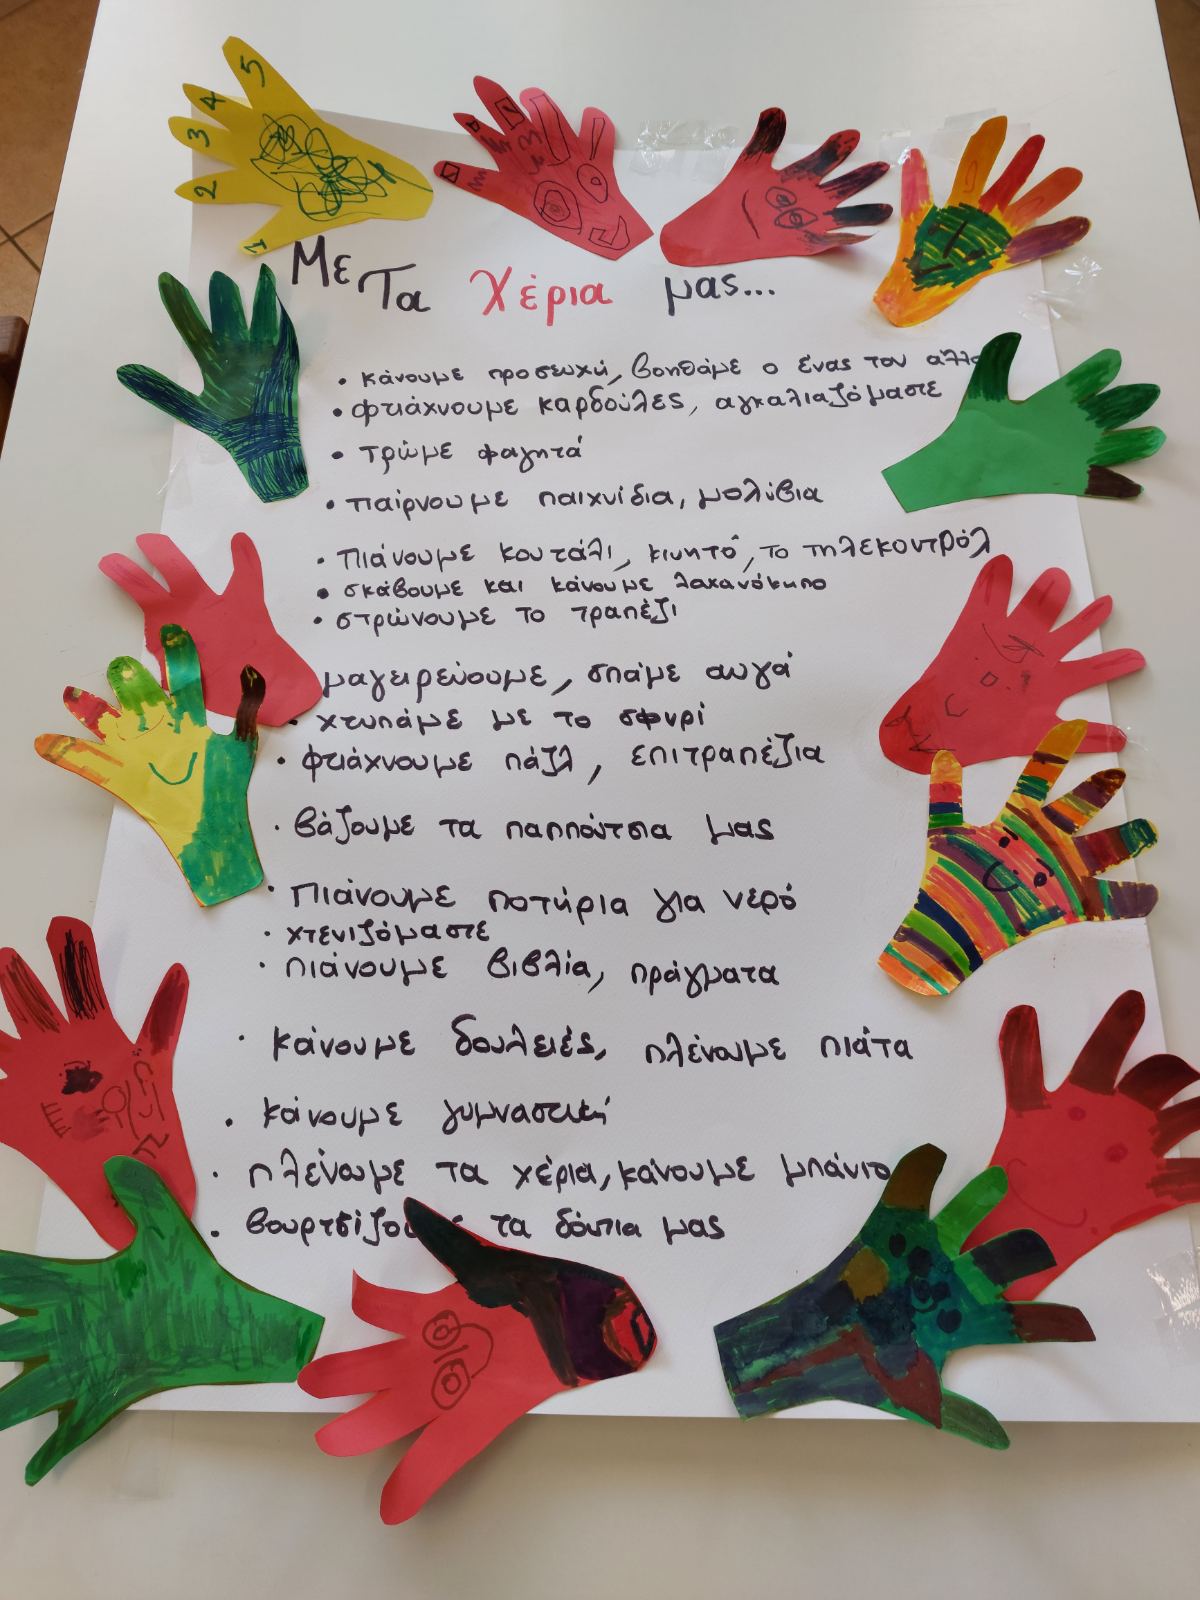 5
4
3
2
1
Με Τα Χέρια μας...
• κάνουμε προσευχή, βοηθάμε ο ένας τον άλλο
• φτιάχνουμε καρδούλες, αγκαλιαζόμαστε
• τρώμε φαγητά
• παίρνουμε παιχνίδια, μολύβια
• πιάνουμε κουτάλι, κινητό, το τηλεκοντρόλ
• σκάβουμε και κάνουμε λαχανόκηπο
• στρώνουμε το τραπέζι
μαγειρεύουμε, σπάμε αυγά
• χτυπάμε με το σφυρί
• φτιάχνουμε πάζλ, επιτραπέζια
• βάζουμε τα παππούτσια μας
• πιάνουμε ποτήρια για νερό
• χτενιζόμαστε
• πιάνουμε βιβλία, πράγματα
• κάνουμε δουλειές, πλένουμε πιάτα
• κάνουμε γυμναστική
• πλένουμε τα χέρια, κάνουμε μπάνιο
• τα δόντια μας